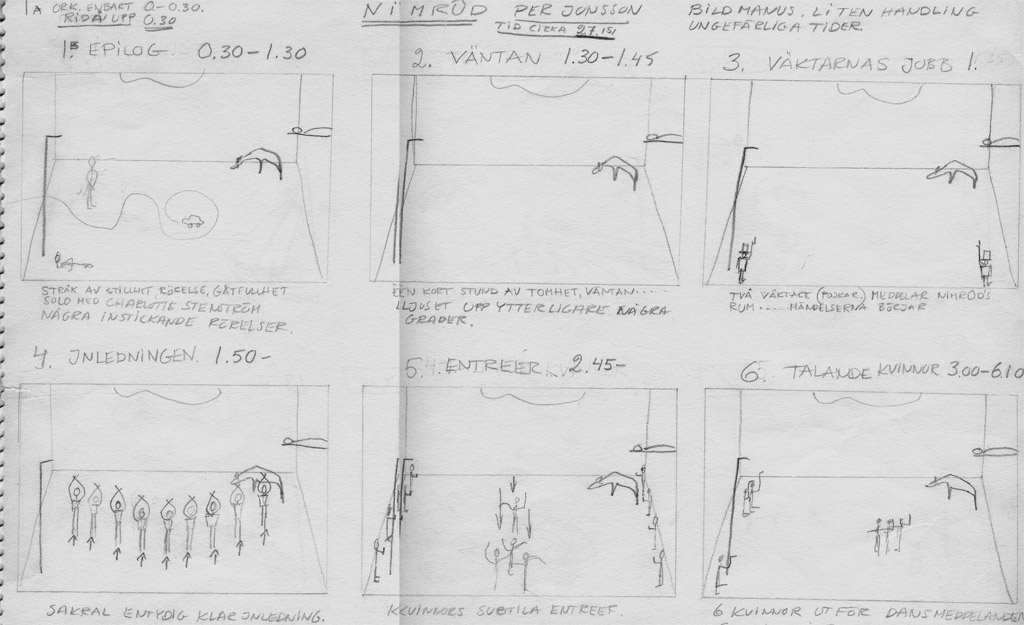 1A ORK. ENBART 0-0.30.
RIDÅN UPP 0.30
NIMRÖD PER JONSSON
TID CIRKA 27.15
BILDMANUS. LITEN HANDLING
UNGEFÄRLIGA TIDER.
1B EPILOG 0.30-1.30
STRÅK AV STILLHET RÖRELSE, GÅTFULLHET
SOLO MED CHARLOTTE STENSTRÖM
NÅGRA INSTICKANDE RÖRELSER.
2. VÄNTAN 1.30-1.45
EN KORT STUND AV TOMHET, VÄNTAN.....
LJUSET UPP YTTERLIGARE NÅGRA
GRADER.
3. VÄKTARNAS JOBB 1.
TVÅ VÄKTARE (POJKAR) MEDDELAR NIMRÖD'S
RUM ..... HÄNDELSERNA BÖRJAR
4. INLEDNINGEN. 1.50-
SAKRAL ENTYDIG KLAR INLEDNING.
5. ENTREÉR 2.45-
KVINNORS SUBTILA ENTREÉ.
6. TALANDE KVINNOR 3.00-6.10
6 KVINNOR UTFÖR DANSMEDDELANDEN